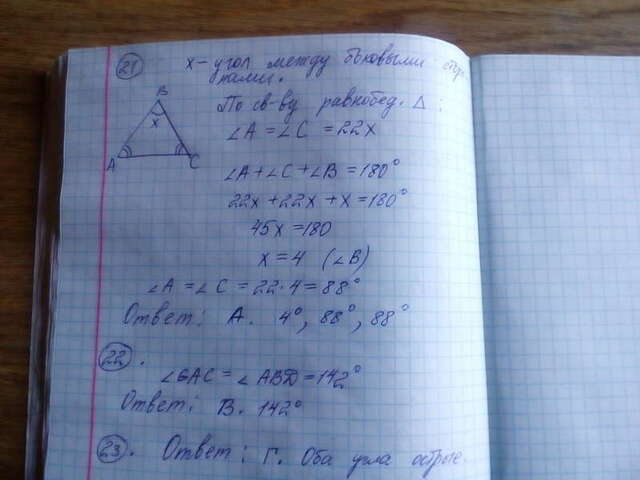 21 x - угол между боковыми сторонами.
По св-ву равнобед. Δ:
B
x
A C
∠A = ∠C = 22x
∠A + ∠C + ∠B = 180°
22x + 22x + x = 180°
45x = 180
x = 4 (∠B)
∠A = ∠C = 22·4 = 88°
Ответ: А. 4°, 88°, 88°
22.
∠GAC = ∠ABD = 142°
Ответ: В. 142°
23. Ответ: Г. Оба угла острые.